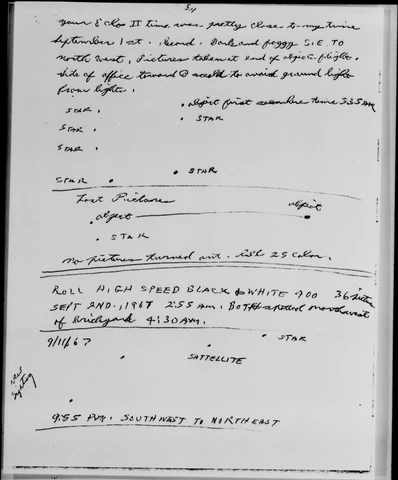 5
your Echo II time was pretty close to my time
September 1st. Record. Dark and foggy S.E. TO
North West. Pictures taken at end of object flight.
side of office toward to avoid ground light
from lights.
object first seen here time 3:35 AM
STAR
STAR
STAR
STAR
STAR
STAR
Last Picture
object
object
STAR
No pictures turned out. 25 Color.
ROLL HIGH SPEED BLACK & WHITE 400 36
SEPT 2ND., 1967 2:55 AM. Both spotted northwest
of brickyard 4:30 AM.
9/11/67
STAR
SATTELLITE
new
sighting
9:55 P.M. SOUTHWEST TO NORTHEAST